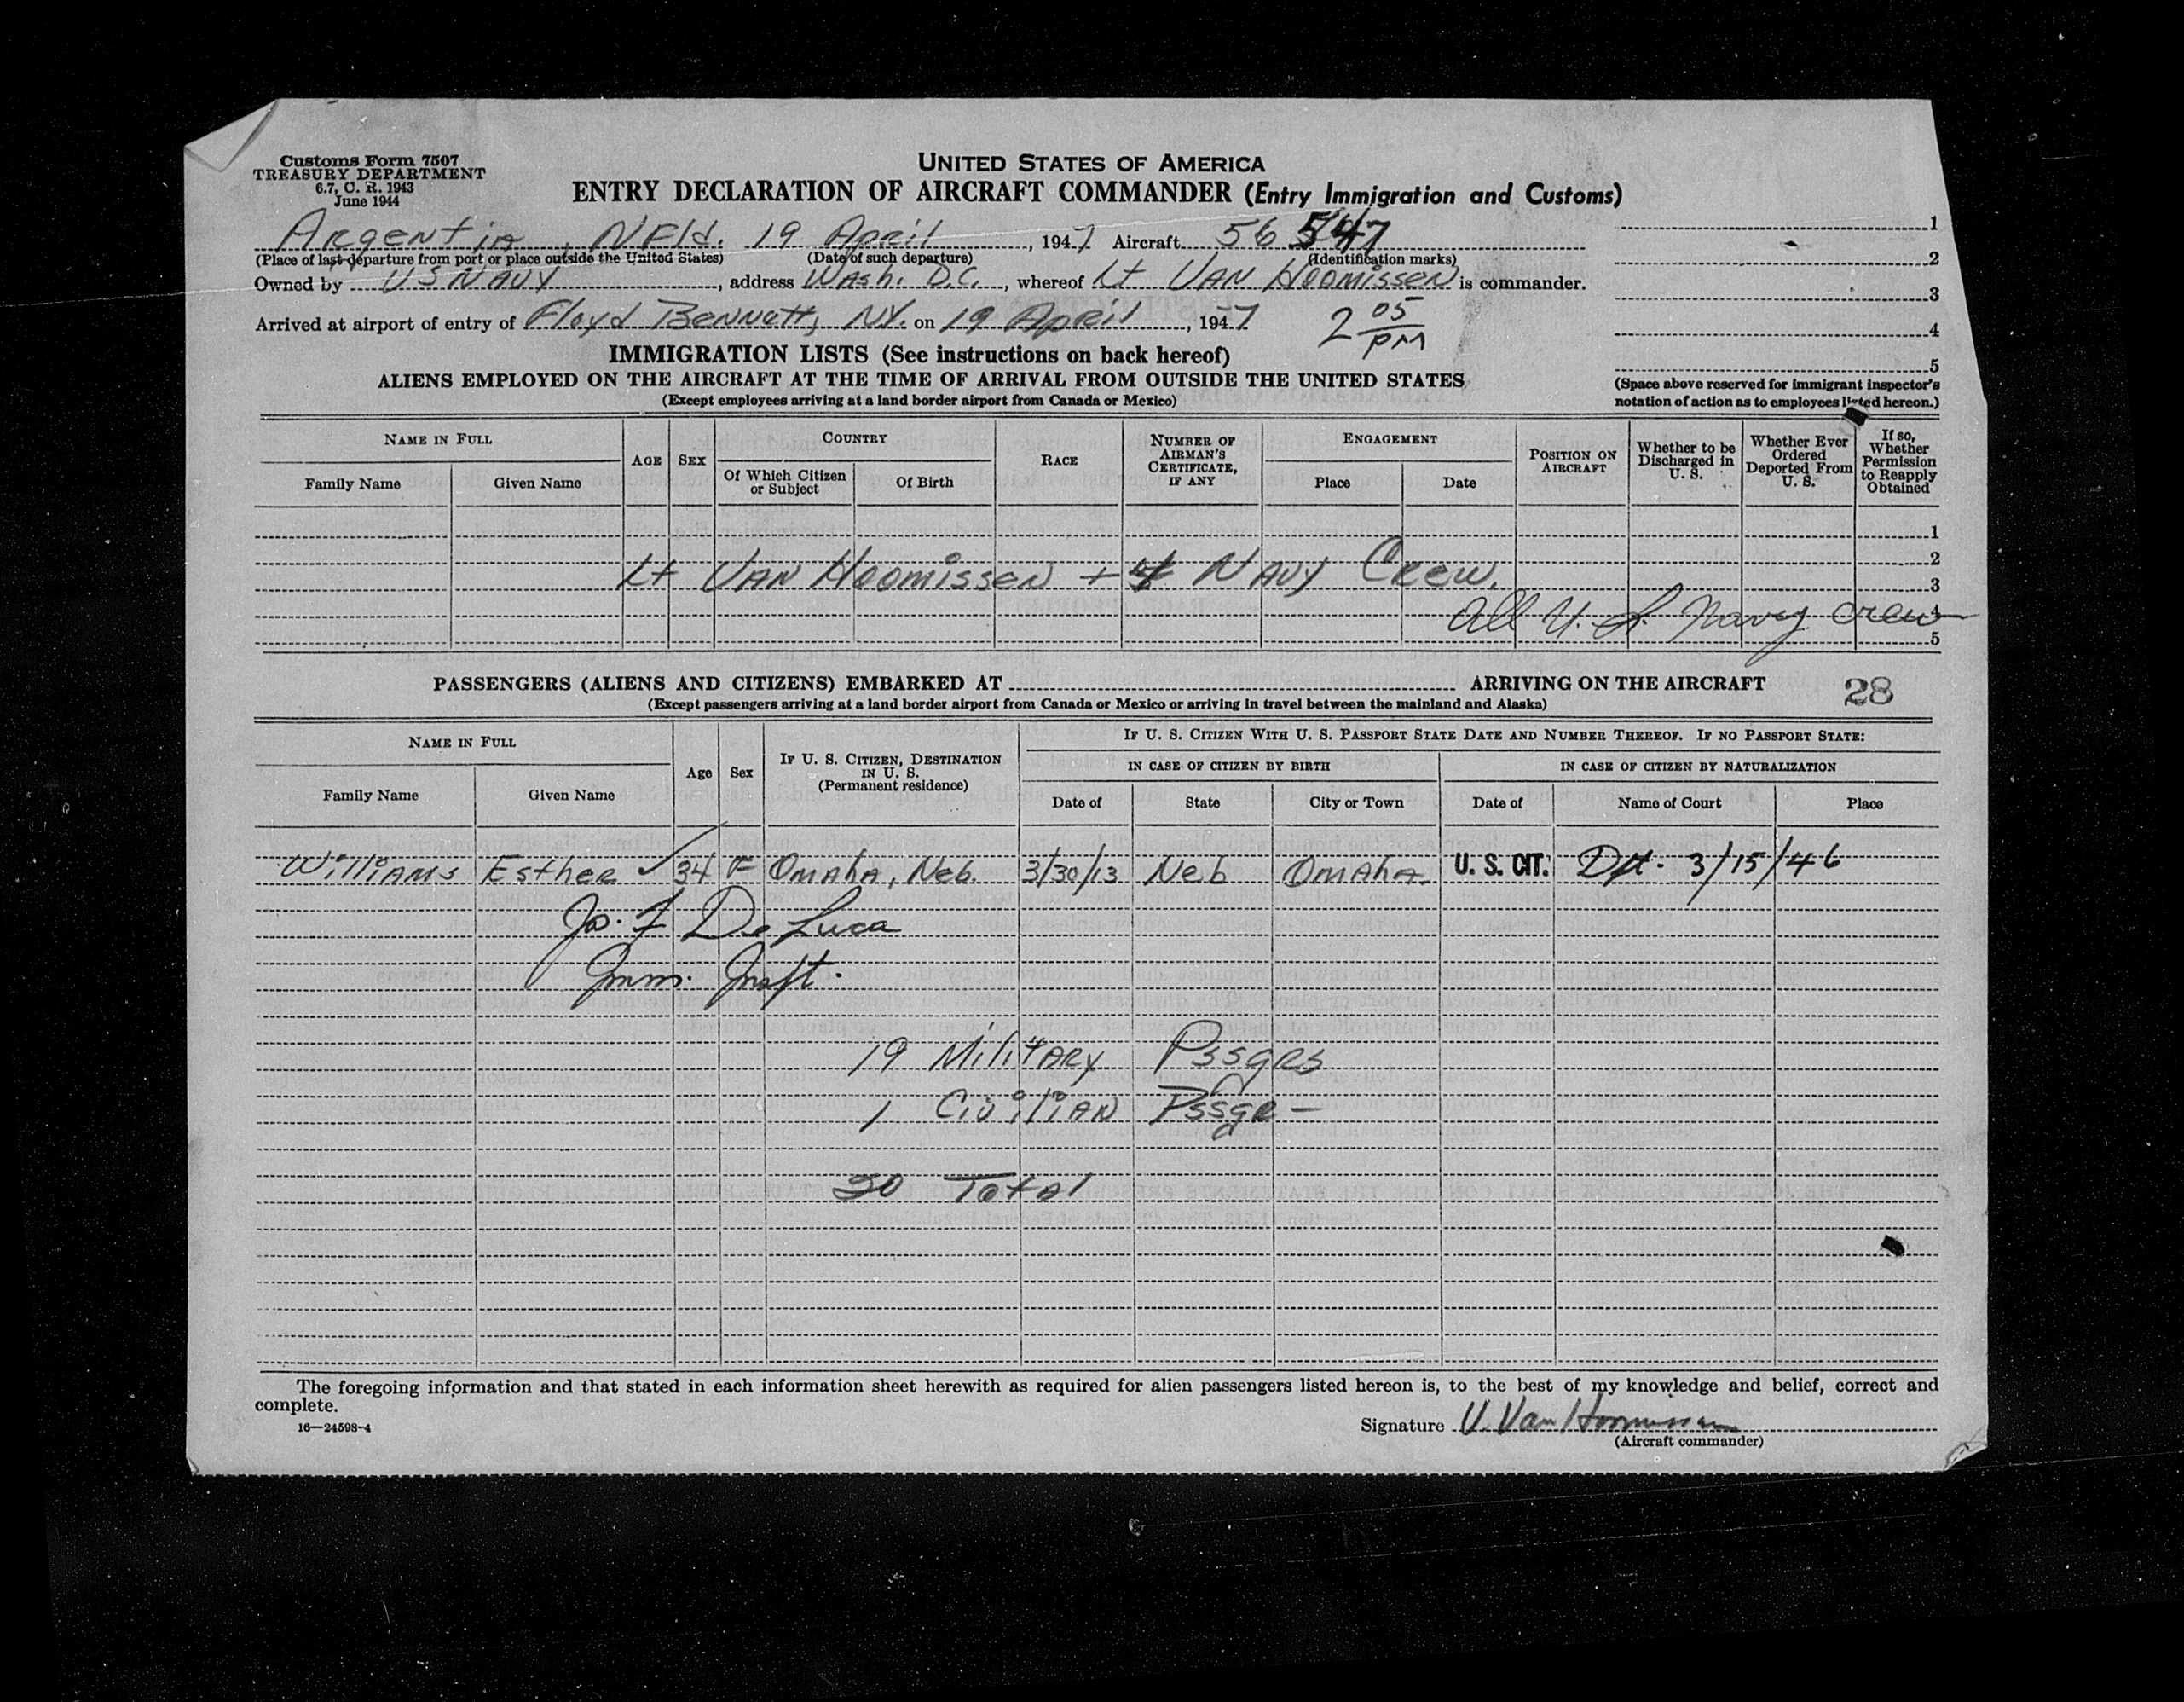 Customs Form 7507
TREASURY DEPARTMENT
6.7, C. R. 1943
June 1944
UNITED STATES OF AMERICA
ENTRY DECLARATION OF AIRCRAFT COMMANDER (Entry Immigration and Customs)
Argentia, NFld. 19 April, 1947 Aircraft 56547
(Place of last departure from port or place outside the United States) (Date of such departure) (Identification marks)
Owned by US NAVY, address Wash. D.C., whereof Lt VAN Hoomissen is commander.
Arrived at airport of entry of Floyd Bennett, NY. on 19 April, 1947 2 05 PM
1
2
3
4
5
(Space above reserved for immigrant inspector's
notation of action as to employees listed hereon.)
IMMIGRATION LISTS (See instructions on back hereof)
ALIENS EMPLOYED ON THE AIRCRAFT AT THE TIME OF ARRIVAL FROM OUTSIDE THE UNITED STATES
(Except employees arriving at a land border airport from Canada or Mexico)
NAME IN FULL
Family Name Given Name
AGE SEX
COUNTRY
Of Which Citizen or Subject Of Birth
RACE
NUMBER OF AIRMAN'S CERTIFICATE, IF ANY
ENGAGEMENT
Place Date
POSITION ON AIRCRAFT
Whether to be Discharged in U. S.
Whether Ever Ordered Deported From U. S.
If so, Whether Permission to Reapply Obtained
1
2
Lt VAN Hoomissen + 4 NAVY Crew. 3
All U. S. Navy crew 4
5
PASSENGERS (ALIENS AND CITIZENS) EMBARKED AT ARRIVING ON THE AIRCRAFT 28
(Except passengers arriving at a land border airport from Canada or Mexico or arriving in travel between the mainland and Alaska)
NAME IN FULL
Family Name Given Name
Age Sex
IF U. S. CITIZEN, DESTINATION IN U. S. (Permanent residence)
IF U. S. CITIZEN WITH U. S. PASSPORT STATE DATE AND NUMBER THEREOF. IF NO PASSPORT STATE:
IN CASE OF CITIZEN BY BIRTH IN CASE OF CITIZEN BY NATURALIZATION
Date of State City or Town Date of Name of Court Place
Williams Esther ✓ 34 F Omaha, Neb. 3/30/13 Neb Omaha. U. S. CIT. 3/15/46
Jo. F De Luca
Imm. Inspt.
19 Military Pssgrs
1 Civilian Pssgr-
20 Total
The foregoing information and that stated in each information sheet herewith as required for alien passengers listed hereon is, to the best of my knowledge and belief, correct and
complete.
16—24598-4
Signature V. Van Hoomissen
(Aircraft commander)